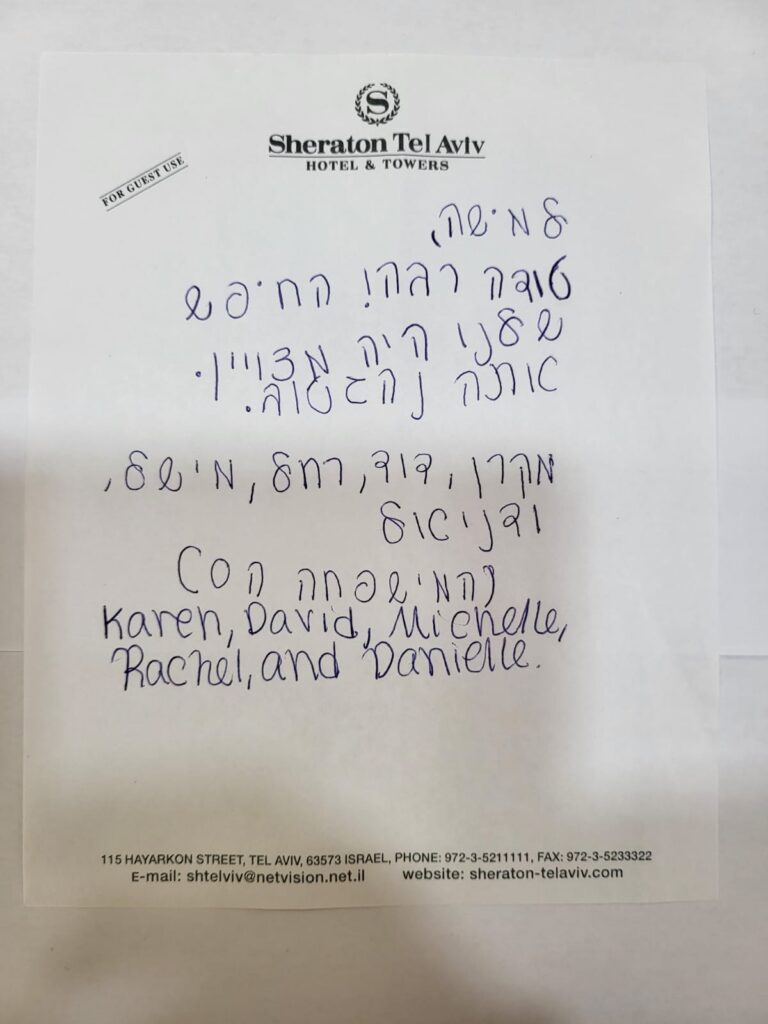 Sheraton Tel Aviv
HOTEL & TOWERS
FOR GUEST USE
למישה,
טודה רבה! החיפש
שלנו היה מצויין.
אתה נהג טוב.
מקרן, דוד, רחל, מישל,
ודניאל
(המישפחה הס)
Karen, David, Michelle,
Rachel, and Danielle.
115 HAYARKON STREET, TEL AVIV, 63573 ISRAEL, PHONE: 972-3-5211111, FAX: 972-3-5233322
E-mail: shtelviv@netvision.net.il website: sheraton-telaviv.com